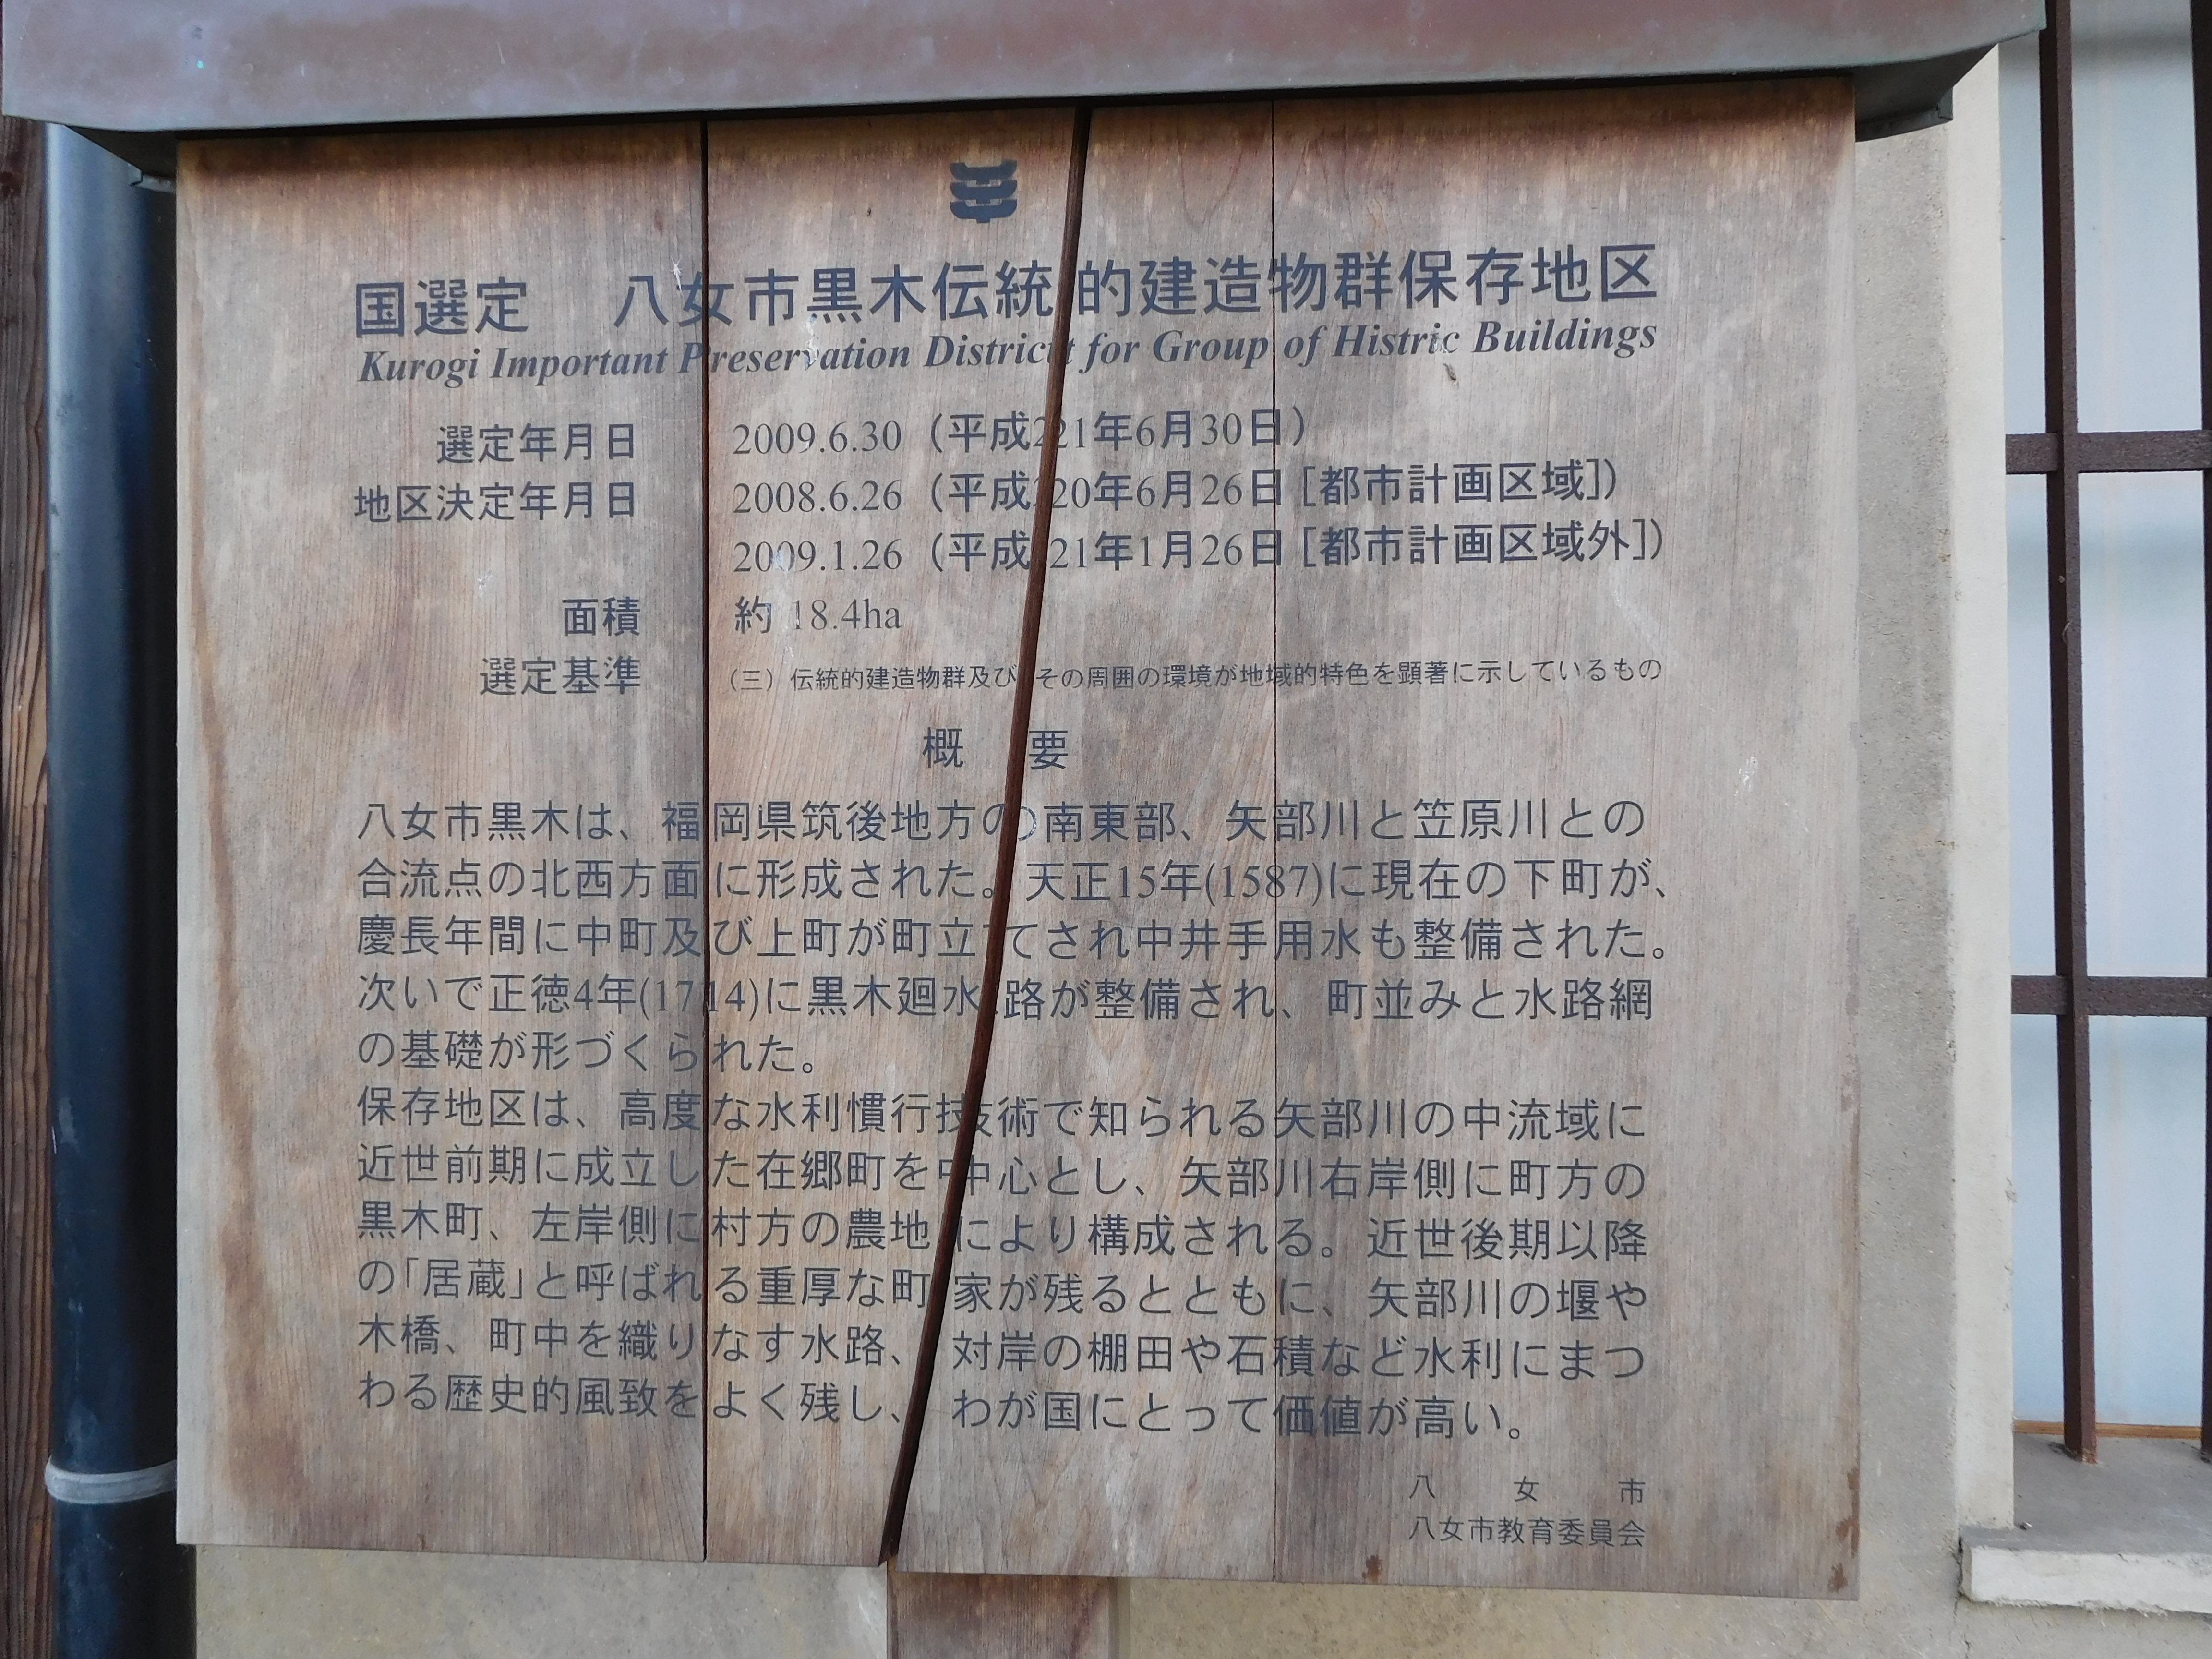 国選定　八女市黒木伝統的建造物群保存地区
Kurogi Important Preservation District for Group of Histric Buildings
選定年月日　2009.6.30（平成21年6月30日）
地区決定年月日　2008.6.26（平成20年6月26日［都市計画区域］）
2009.1.26（平成21年1月26日［都市計画区域外］）
面積　約18.4ha
選定基準　（三）伝統的建造物群及びその周囲の環境が地域的特色を顕著に示しているもの
概　要
八女市黒木は、福岡県筑後地方の南東部、矢部川と笠原川との
合流点の北西方面に形成された。天正15年(1587)に現在の下町が、
慶長年間に中町及び上町が町立てされ中井手用水も整備された。
次いで正徳4年(1714)に黒木廻水路が整備され、町並みと水路網
の基礎が形づくられた。
保存地区は、高度な水利慣行技術で知られる矢部川の中流域に
近世前期に成立した在郷町を中心とし、矢部川右岸側に町方の
黒木町、左岸側に村方の農地により構成される。近世後期以降
の「居蔵」と呼ばれる重厚な町家が残るとともに、矢部川の堰や
木橋、町中を織りなす水路、対岸の棚田や石積など水利にまつ
わる歴史的風致をよく残し、わが国にとって価値が高い。
八女市
八女市教育委員会